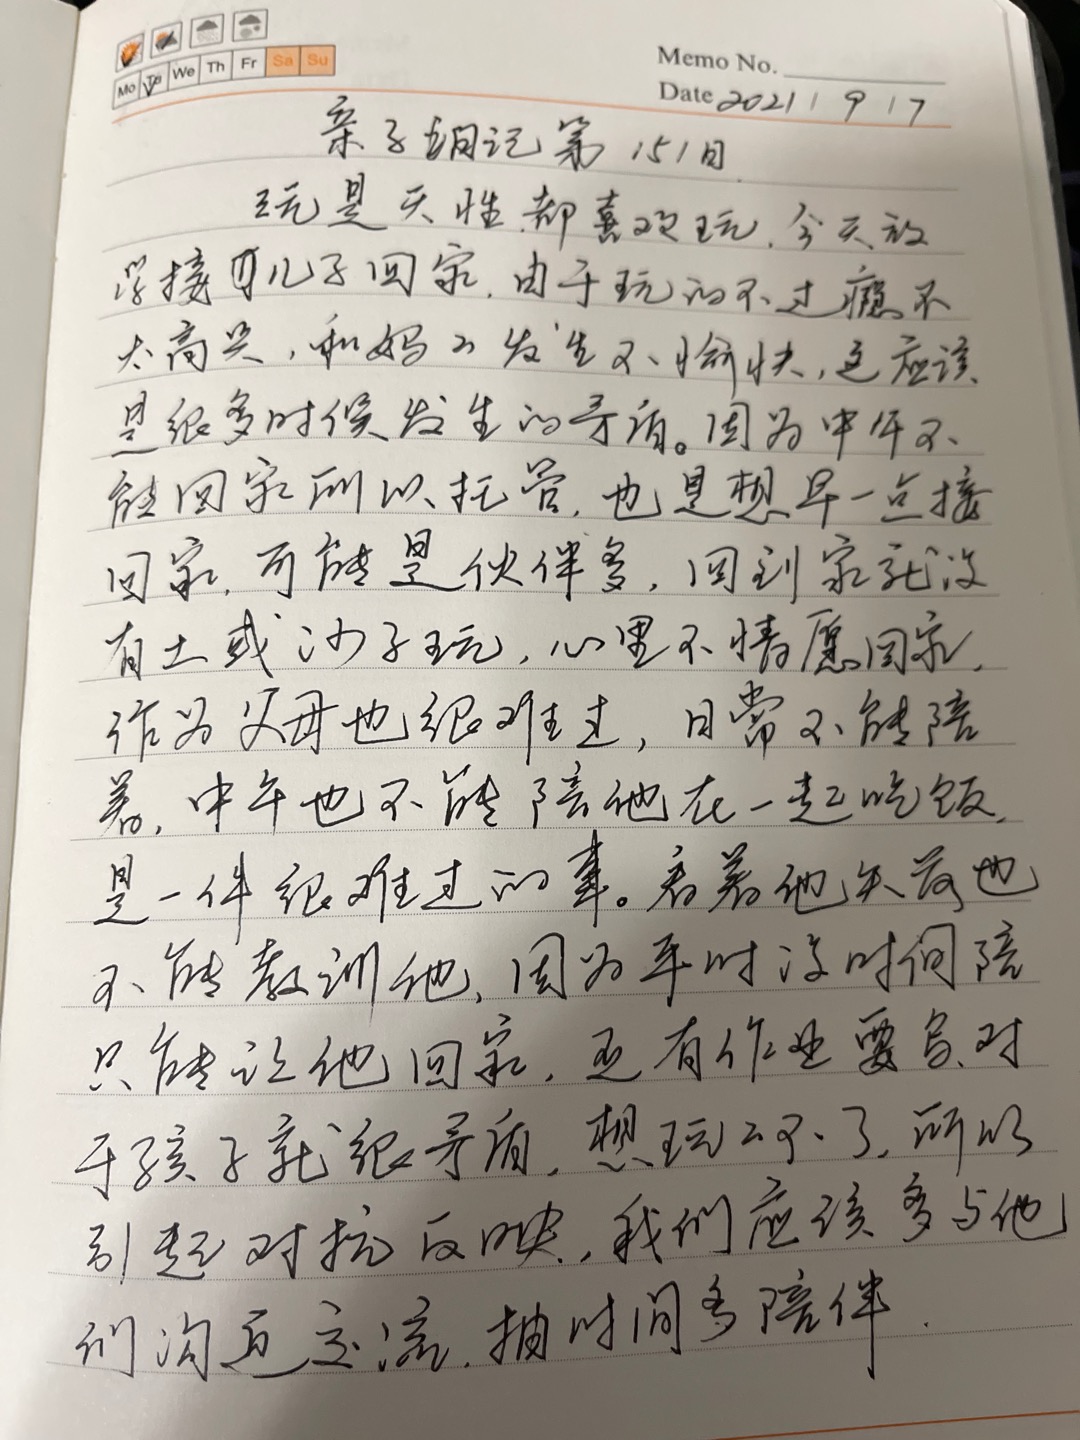 Mo Tu We Th Fr Sa Su
Memo No.
Date 2021 / 9 / 7
亲子日记第151日
玩是天性,都喜欢玩,今天放
学接儿子回家,由于玩的不过瘾不
太高兴,和妈妈发生不愉快,这应该
是很多时候发生的矛盾。因为中午不
能回家所以托管,也是想早一点接
回家,可能是伙伴多,回到家就没
有土或沙子玩,心里不情愿回家,
作为父母也很难过,日常不能陪
着,中午也不能陪他在一起吃饭,
是一件很难过的事。看着他失落也
不能教训他,因为平时没时间陪
只能让他回家,还有作业要写,对
于孩子就很矛盾,想玩玩不了,所以
引起对抗反映,我们应该多与他
们沟通交流,抽时间多陪伴.